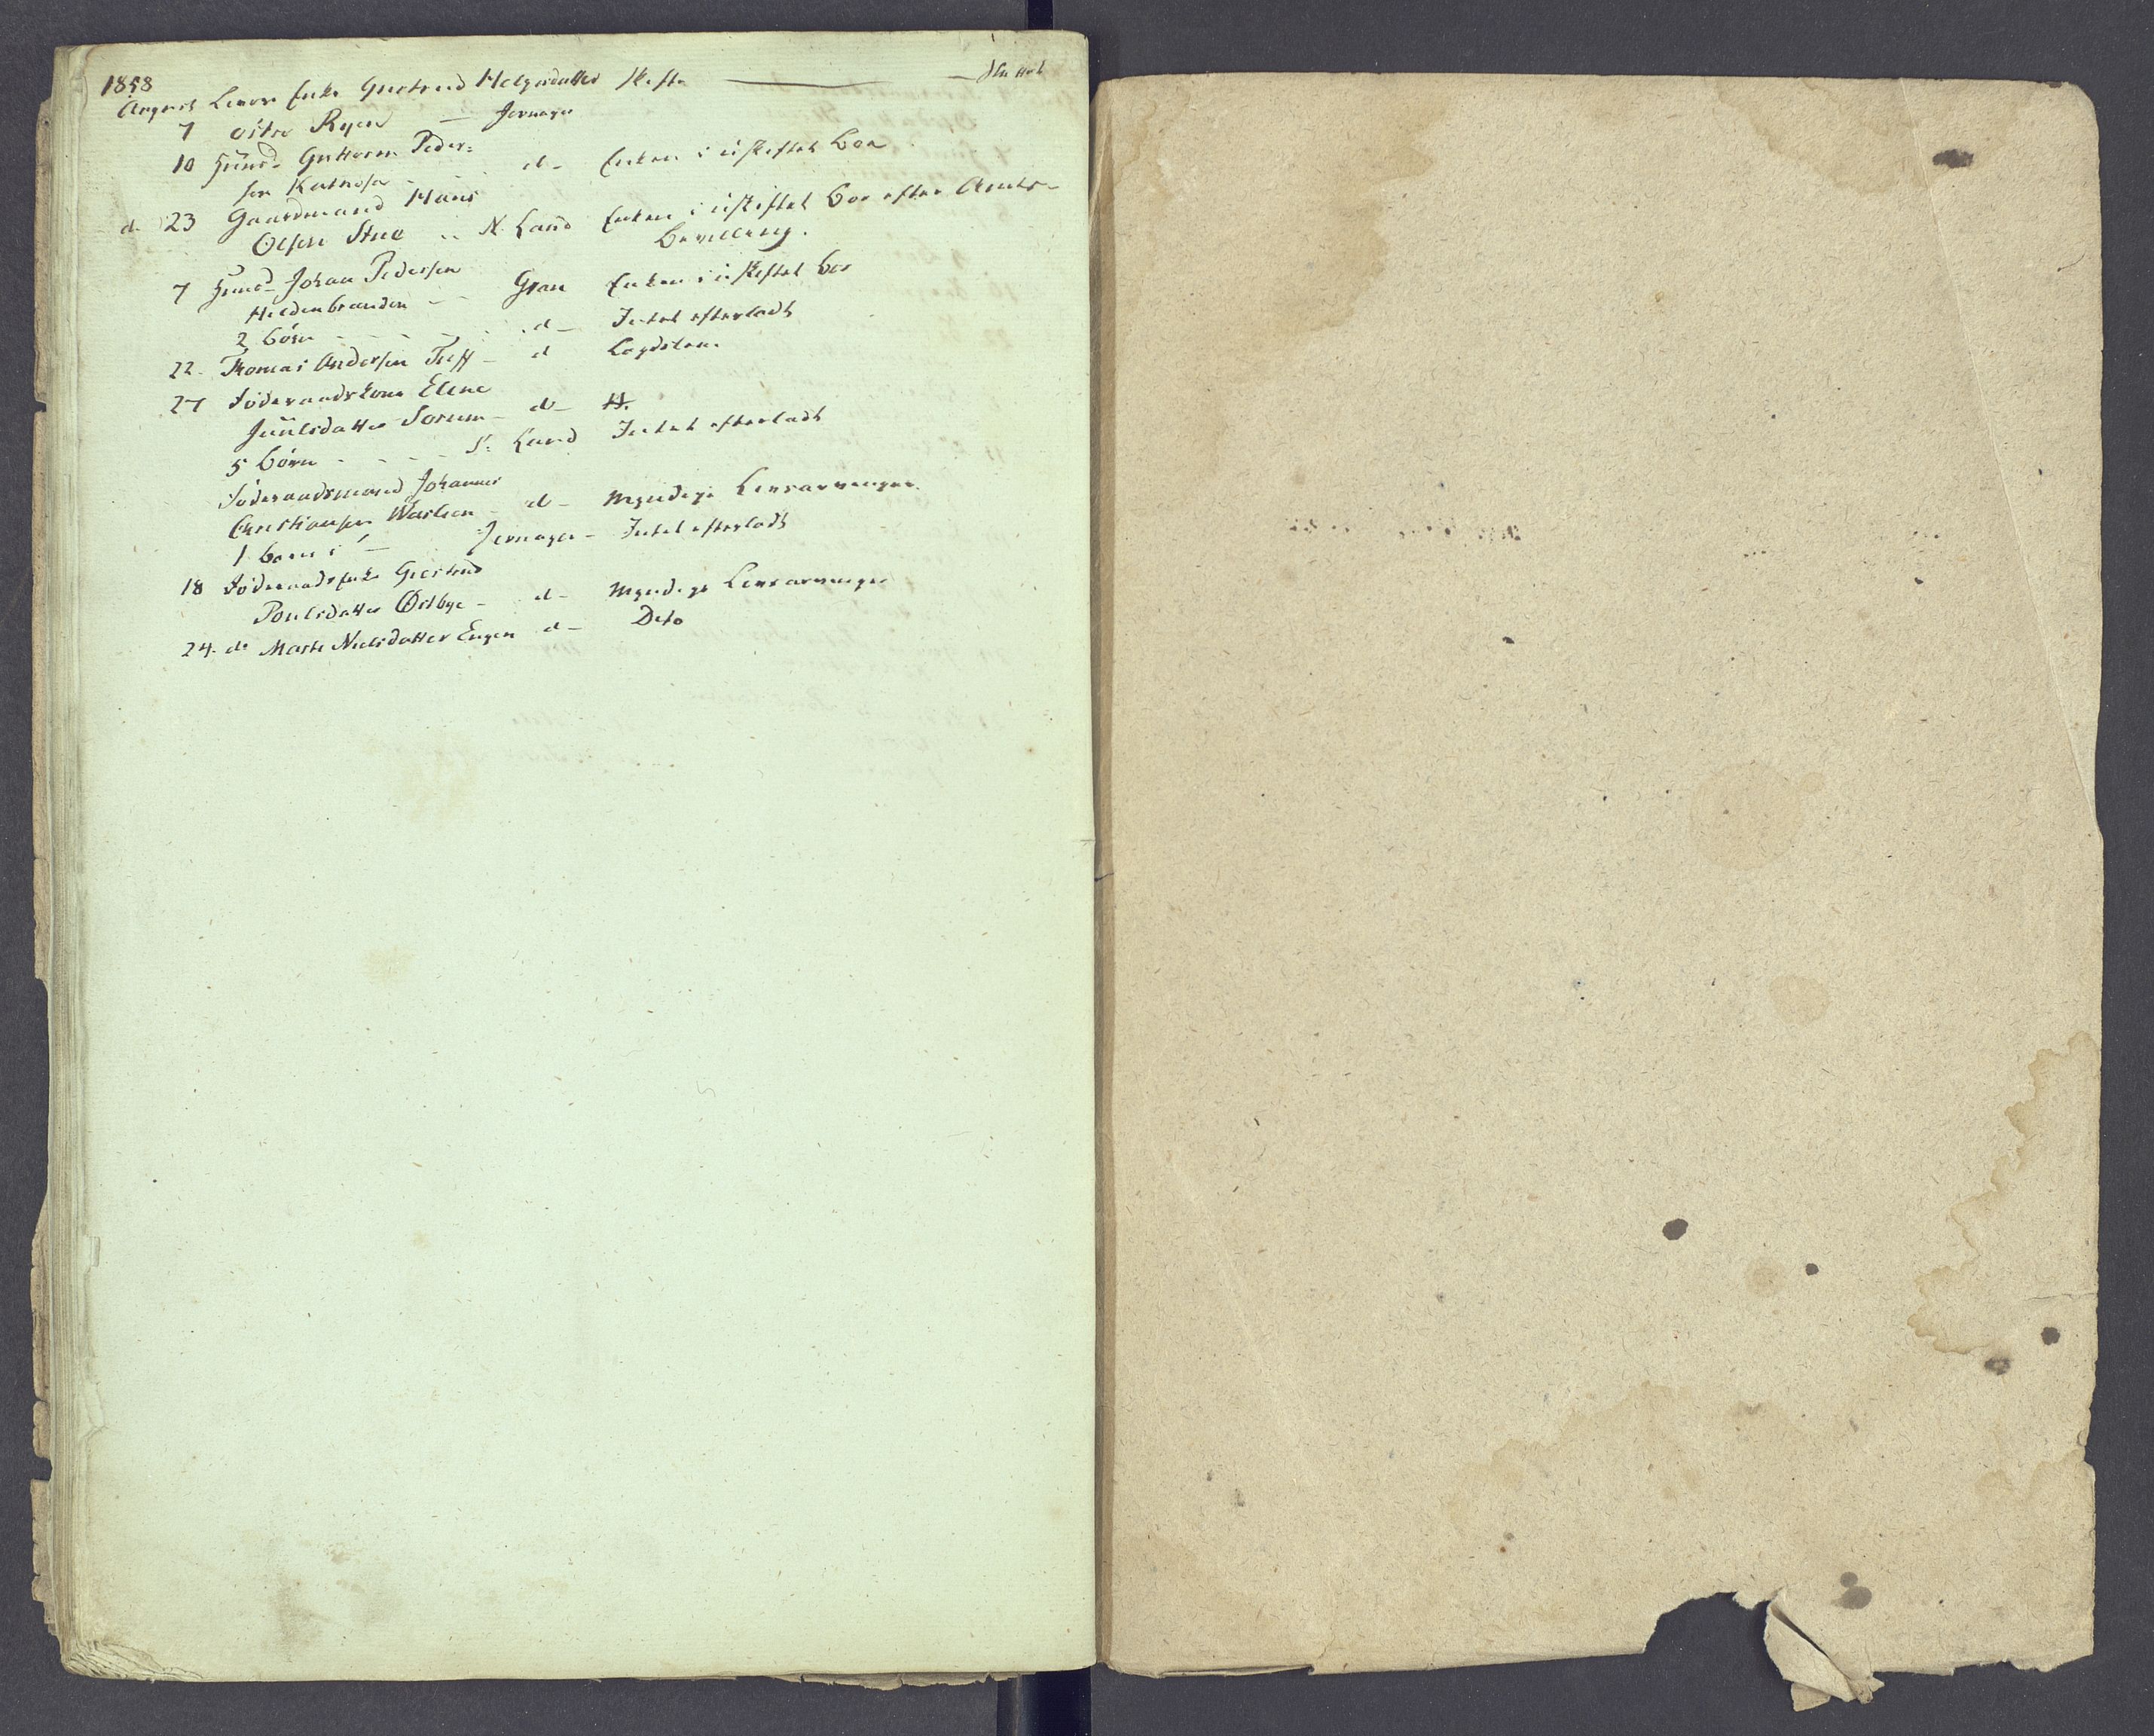 1858
August Livøre Enke Giertrud Helgesdatter Skifte — Sluttet
7 østre Ryen — Jevnager
10 Huusmd Guttorm Peder=
sen Katnosa - - d- Enken i uskiftet Boe
d. 23 Gaardmand Hans
Olsen Stue .. N. Land Enken i uskiftet Boe efter Amts-
Bevilling.
7 Huusmd Johan Pedersen
Hildenbranden - - Gran Enken i uskiftet Boe
2 børn - - - - d- Intet efterladt
22. Thomas Andersen - d Lægdslem.
27 Føderaadskone Elene
Juulsdatter Sorum - d- H.
5 børn - - - S: Land Intet efterladt
Føderaadsmand Johannes
Christiansen - d- Myndige Livsarvinger.
1 barn i - Jevnager - Intet efterladt
18 Føderaadsenke Giertrud
Poulsdatter Østbye - d- Myndige Livsarvinger
24. do Marte Nielsdatter Engen d- Dito